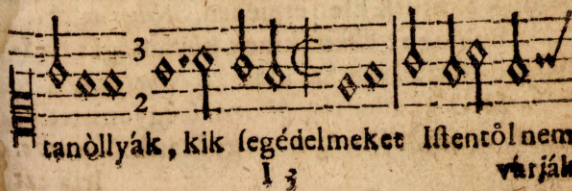 3
2
tanòllyák, kik ſegédelmeket Iſtentől nem
I 3 várják